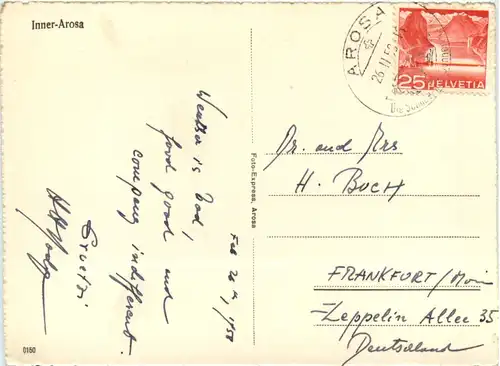 Inner-Arosa
Feb 26th, 1958
Weather is bad,
food good and
company indifferent.
Gruetzi
0160
Foto-Express, Arosa
AROSA
26.II.58
25 HELVETIA
Dr. and Mrs
H. BOCH
FRANKFURT/Main
Zeppelin Allee 35
Deutschland